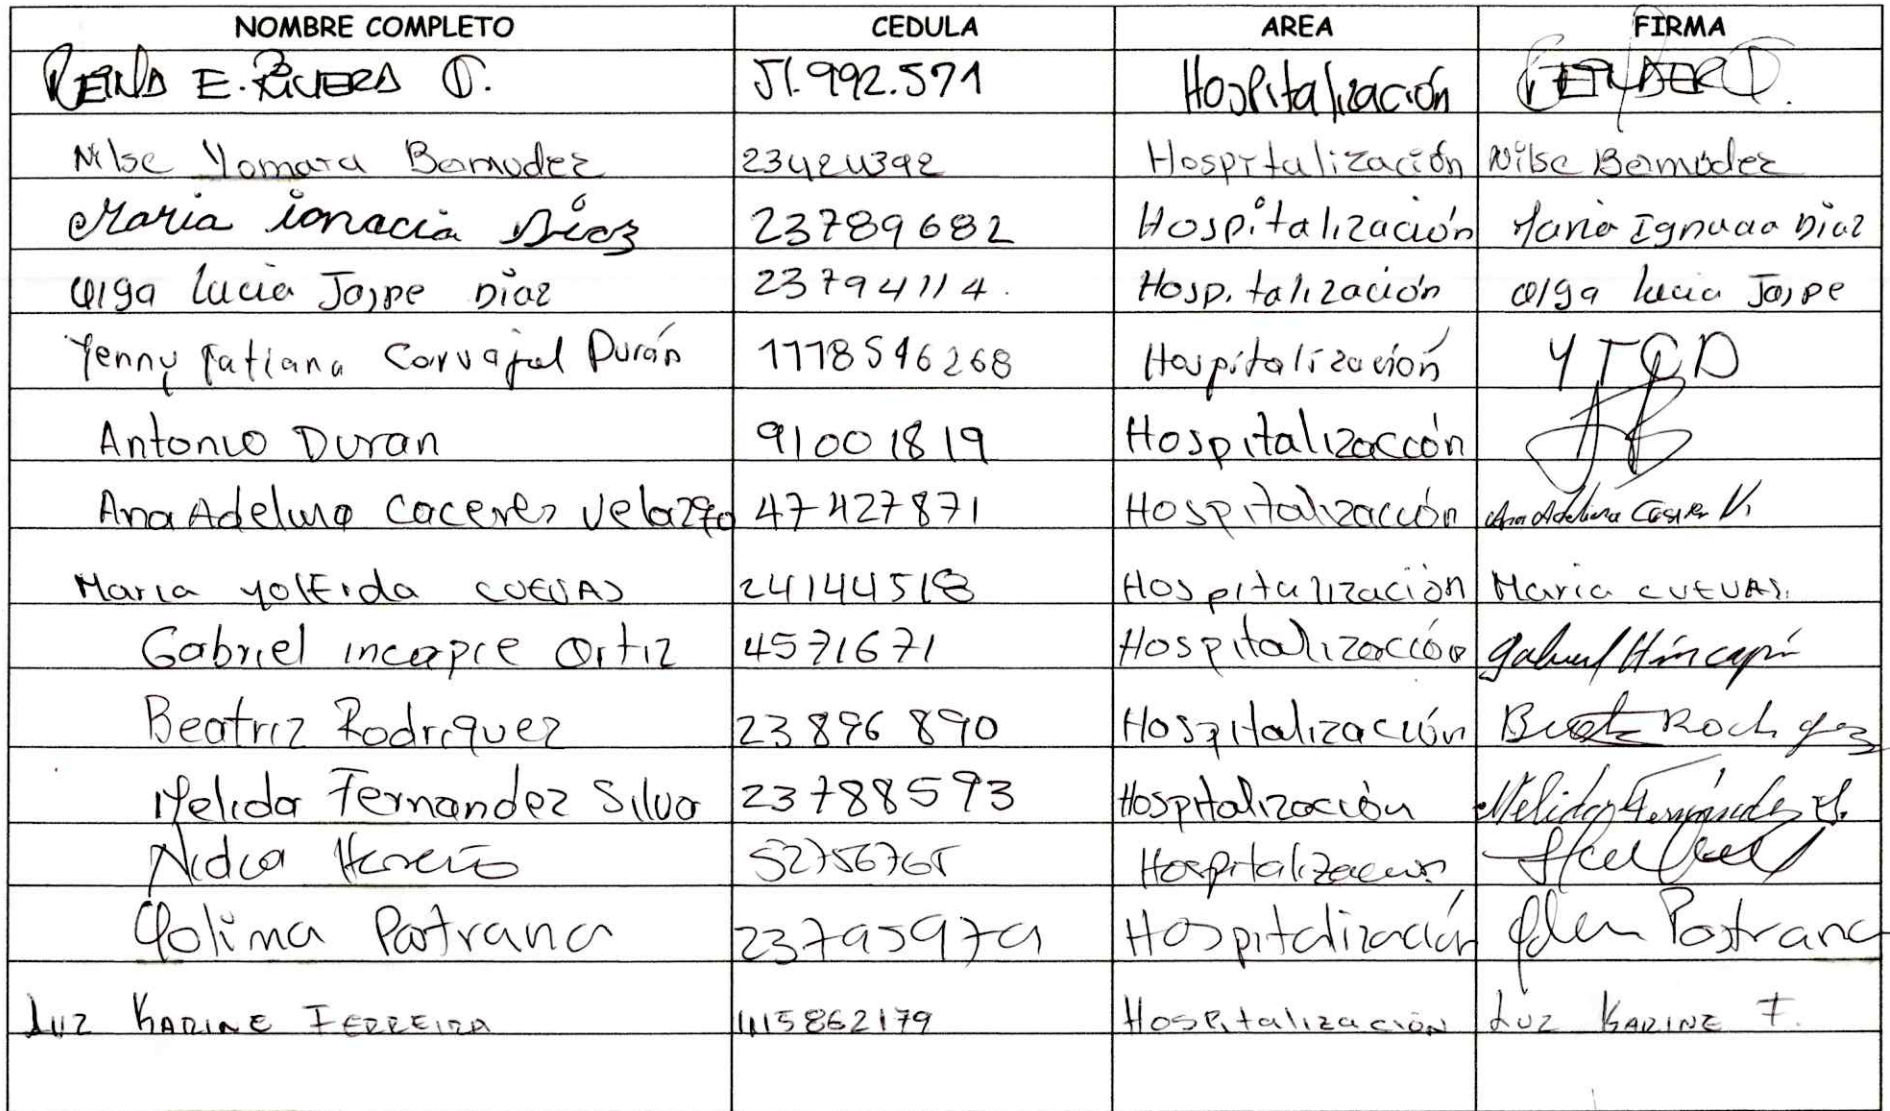 NOMBRE COMPLETO CEDULA AREA FIRMA
REINA E. RIVERA O. 51.992.571 Hospitalización
Nilse Yomara Bermudez 23424392 Hospitalización Nilse Bermúdez
Maria ignacia Diaz 23789682 Hospitalización Maria Ignacia Diaz
Olga lucia Jaspe Diaz 23794114. Hospitalización Olga lucia Jaspe
Yenny Tatiana Carvajal Durán 1118546268 Hospitalización YTCD
Antonio Duran 91001819 Hospitalización
Ana Adelina Caceres Velazco 47427871 Hospitalización Ana Adelina V.
Maria yolEida CUEVAS 24144518 Hospitalización Maria CUEVAS.
Gabriel incapie Ortiz 4571671 Hospitalización Gabriel Hincapié
Beatriz Rodriguez 23896890 Hospitalización
Melida Fernandez Silva 23788593 Hospitalización Melida Fernández S.
Nidia 52756765 Hospitalización
Yolima Pastrana 23795979 Hospitalización Pastrana
Luz KARINE FERREIRA 1115862179 Hospitalización Luz KARINE F.